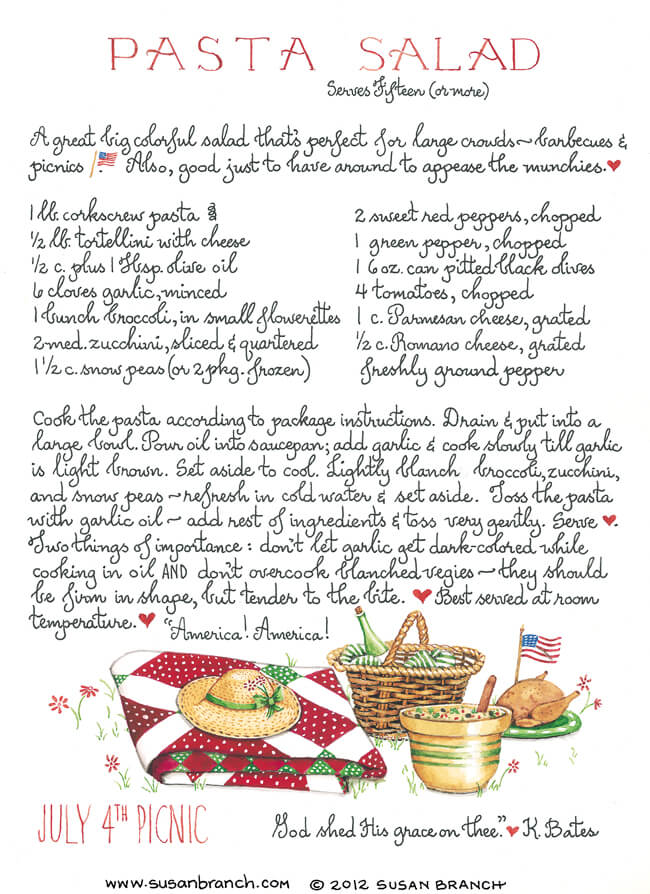 PASTA SALAD
Serves Fifteen (or more)
A great big colorful salad that's perfect for large crowds ~ barbecues &
picnics. Also, good just to have around to appease the munchies. ♥
1 lb. corkscrew pasta
½ lb. tortellini with cheese
½ c. plus 1 Tbsp. olive oil
6 cloves garlic, minced
1 bunch broccoli, in small flowerettes
2 med. zucchini, sliced & quartered
1 ½ c. snow peas (or 2 pkg. frozen)
2 sweet red peppers, chopped
1 green pepper, chopped
1 6 oz. can pitted black olives
4 tomatoes, chopped
1 c. Parmesan cheese, grated
½ c. Romano cheese, grated
freshly ground pepper
Cook the pasta according to package instructions. Drain & put into a
large bowl. Pour oil into saucepan; add garlic & cook slowly till garlic
is light brown. Set aside to cool. Lightly blanch broccoli, zucchini,
and snow peas ~ refresh in cold water & set aside. Toss the pasta
with garlic oil ~ add rest of ingredients & toss very gently. Serve ♥.
Two things of importance: don't let garlic get dark-colored while
cooking in oil AND don't overcook blanched vegies ~ they should
be firm in shape, but tender to the bite. ♥ Best served at room
temperature. ♥ "America! America!
JULY 4TH PICNIC
God shed His grace on thee." ♥ K. Bates
www.susanbranch.com © 2012 SUSAN BRANCH